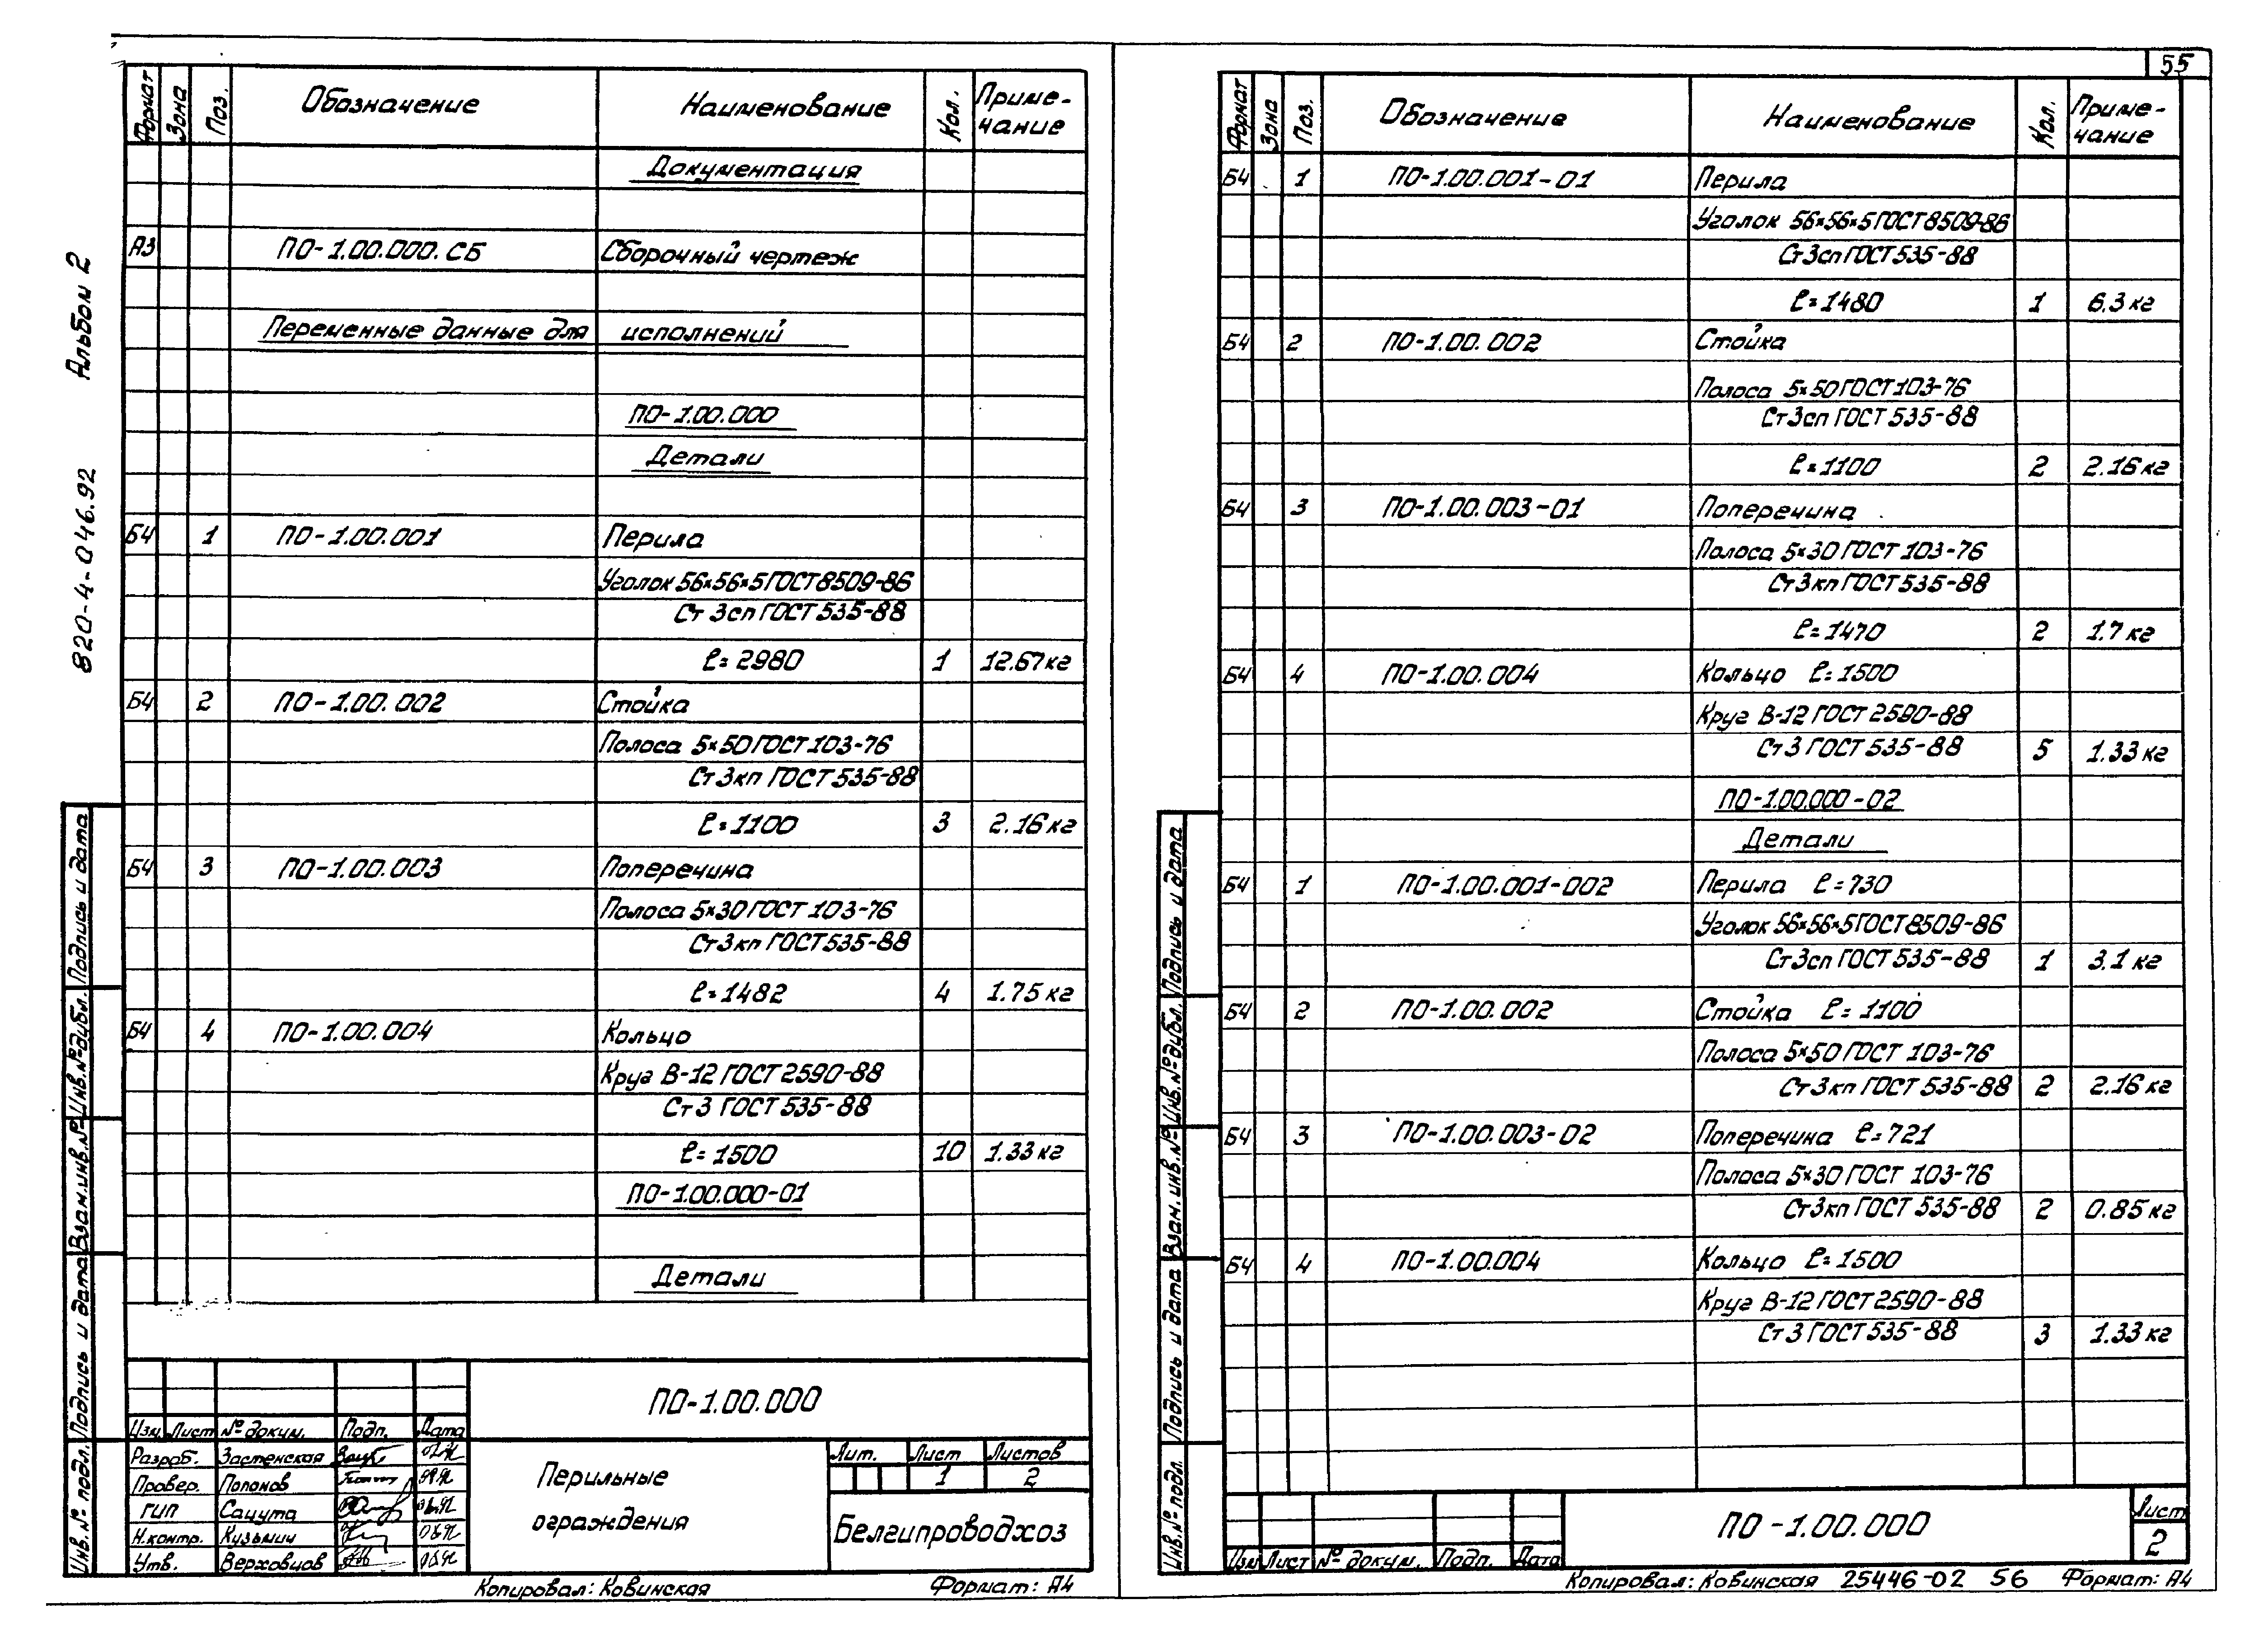 Альбом 2
820-4-046.92
Формат Зона Поз. Обозначение Наименование Кол. Приме-
чание
Документация
А3 ПО-1.00.000.СБ Сборочный чертеж
Переменные данные для исполнений
ПО-1.00.000
Детали
Б4 1 ПО-1.00.001 Перила
Уголок 56×56×5 ГОСТ 8509-86
Ст 3сп ГОСТ 535-88
ℓ=2980 1 12.67 кг
Б4 2 ПО-1.00.002 Стойка
Полоса 5×50 ГОСТ 103-76
Ст 3кп ГОСТ 535-88
ℓ=1100 3 2.16 кг
Б4 3 ПО-1.00.003 Поперечина
Полоса 5×30 ГОСТ 103-76
Ст 3кп ГОСТ 535-88
ℓ=1482 4 1.75 кг
Б4 4 ПО-1.00.004 Кольцо
Круг В-12 ГОСТ 2590-88
Ст 3 ГОСТ 535-88
ℓ=1500 10 1.33 кг
ПО-1.00.000-01
Детали
Подпись и дата
Инв.№ дубл.
Взам.инв.№
Подпись и дата
Инв.№ подл.
ПО-1.00.000
Изм. Лист № докум. Подп. Дата
Разраб. Застенская
Провер. Попонов
ГИП Сацута
Н.контр. Кузьмин
Утв. Верховцов
Перильные
ограждения
Лит. Лист Листов
1 2
Белгипроводхоз
Копировал: Ковинская Формат: А4
55
Формат Зона Поз. Обозначение Наименование Кол. Приме-
чание
Б4 1 ПО-1.00.001-01 Перила
Уголок 56×56×5 ГОСТ 8509-86
Ст 3сп ГОСТ 535-88
ℓ=1480 1 6.3 кг
Б4 2 ПО-1.00.002 Стойка
Полоса 5×50 ГОСТ 103-76
Ст 3сп ГОСТ 535-88
ℓ=1100 2 2.16 кг
Б4 3 ПО-1.00.003-01 Поперечина
Полоса 5×30 ГОСТ 103-76
Ст 3кп ГОСТ 535-88
ℓ=1470 2 1.7 кг
Б4 4 ПО-1.00.004 Кольцо ℓ=1500
Круг В-12 ГОСТ 2590-88
Ст 3 ГОСТ 535-88 5 1.33 кг
ПО-1.00.000-02
Детали
Б4 1 ПО-1.00.001-002 Перила ℓ=730
Уголок 56×56×5 ГОСТ 8509-86
Ст 3сп ГОСТ 535-88 1 3.1 кг
Б4 2 ПО-1.00.002 Стойка ℓ=1100
Полоса 5×50 ГОСТ 103-76
Ст 3кп ГОСТ 535-88 2 2.16 кг
Б4 3 ПО-1.00.003-02 Поперечина ℓ=721
Полоса 5×30 ГОСТ 103-76
Ст 3кп ГОСТ 535-88 2 0.85 кг
Б4 4 ПО-1.00.004 Кольцо ℓ=1500
Круг В-12 ГОСТ 2590-88
Ст 3 ГОСТ 535-88 3 1.33 кг
Подпись и дата
Инв.№ дубл.
Взам.инв.№
Подпись и дата
Инв.№ подл.
Изм Лист № докум. Подп. Дата
ПО-1.00.000
Лист
2
Копировал: Ковинская 25446-02 56 Формат: А4